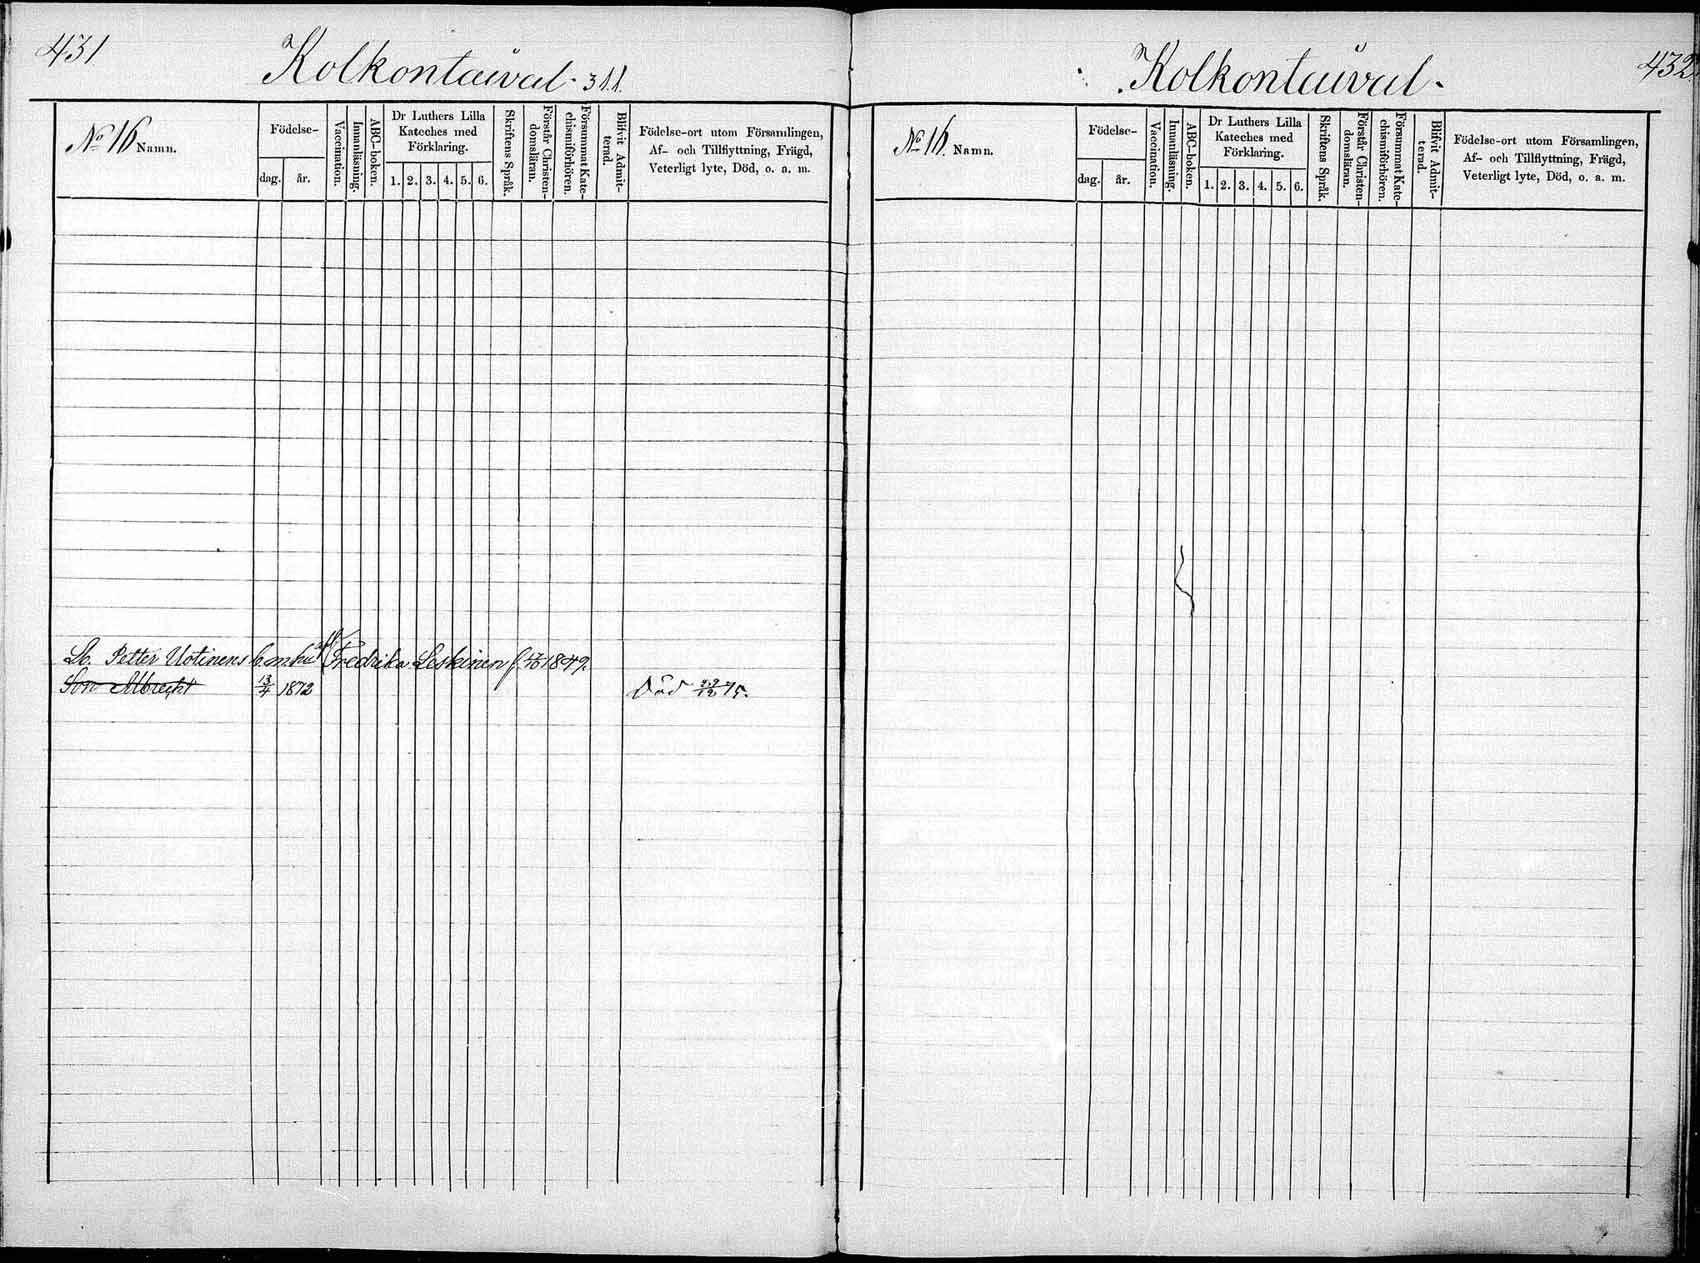 431
Kolkontaival. 311.
No 16 Namn.
Födelse-
dag. år.
Vaccination.
Innanläsning.
ABC-boken.
Dr Luthers Lilla
Kateches med
Förklaring.
1. 2. 3. 4. 5. 6.
Skriftens Språk.
Förstår Christen-
domsläran.
Försummat Kate-
chismiförhören.
Blifvit Admit-
terad.
Födelse-ort utom Församlingen,
Af- och Tillflyttning, Frägd,
Veterligt lyte, Död, o. a. m.
Petter Uotinens Fredrika Leskinen f. 1849.
Son Albrecht 13/4 1872 Död 22/12 75.
432
Kolkontaival.
No 16. Namn.
Födelse-
dag. år.
Vaccination.
Innanläsning.
ABC-boken.
Dr Luthers Lilla
Kateches med
Förklaring.
1. 2. 3. 4. 5. 6.
Skriftens Språk.
Förstår Christen-
domsläran.
Försummat Kate-
chismiförhören.
Blifvit Admit-
terad.
Födelse-ort utom Församlingen,
Af- och Tillflyttning, Frägd,
Veterligt lyte, Död, o. a. m.